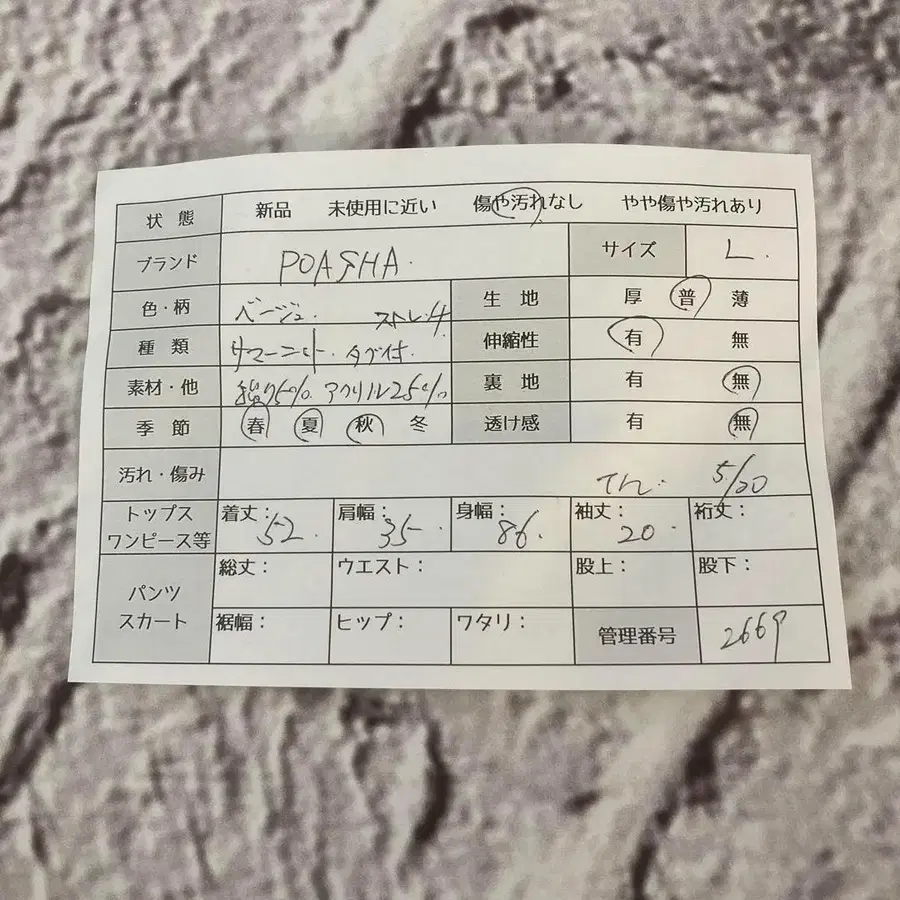 状態 新品 未使用に近い 傷や汚れなし やや傷や汚れあり
ブランド POASHA. サイズ L.
色・柄 ベージュ. ストレッチ 生地 厚 普 薄
種類 サマーニット. タグ付. 伸縮性 有 無
素材・他 75% アクリル25% 裏地 有 無
季節 春 夏 秋 冬 透け感 有 無
汚れ・傷み 5/20
トップス ワンピース等 着丈：52. 肩幅：35. 身幅：86. 袖丈：20. 裄丈：
パンツ スカート 総丈： ウエスト： 股上： 股下：
裾幅： ヒップ： ワタリ： 管理番号 2669